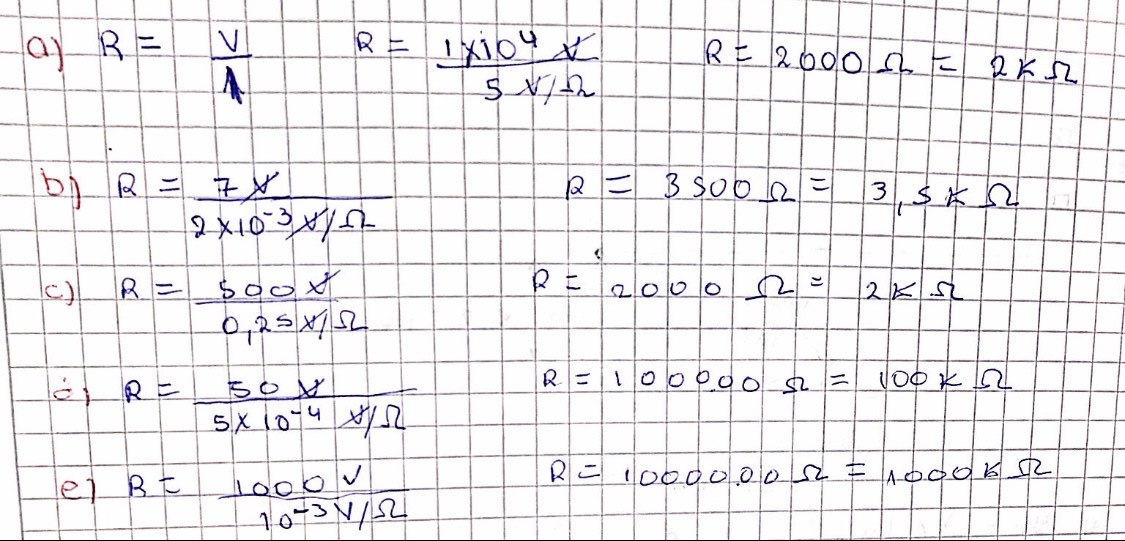 a) R = V/A R = 1x10⁴ V / 5 V/Ω R = 2000 Ω = 2K Ω
b) R = 7 V / 2x10⁻³ V/Ω R = 3500 Ω = 3,5K Ω
c) R = 500 V / 0,25 V/Ω R = 2000 Ω = 2K Ω
R = 50 V / 5x10⁻⁴ V/Ω R = 100000 Ω = 100K Ω
e) R = 1000 V / 10⁻³ V/Ω R = 1000000 Ω = 1000K Ω